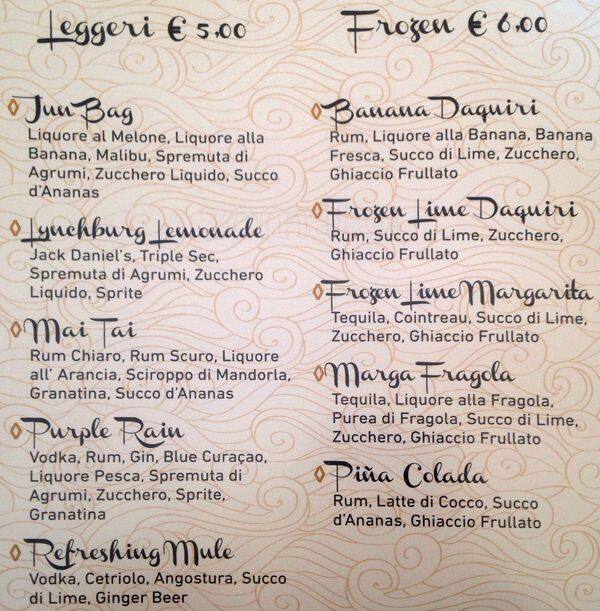 Leggeri € 5,00
Jun Bag
Liquore al Melone, Liquore alla
Banana, Malibu, Spremuta di
Agrumi, Zucchero Liquido, Succo
d'Ananas
Lynchburg Lemonade
Jack Daniel's, Triple Sec,
Spremuta di Agrumi, Zucchero
Liquido, Sprite
Mai Tai
Rum Chiaro, Rum Scuro, Liquore
all' Arancia, Sciroppo di Mandorla,
Granatina, Succo d'Ananas
Purple Rain
Vodka, Rum, Gin, Blue Curaçao,
Liquore Pesca, Spremuta di
Agrumi, Zucchero, Sprite,
Granatina
Refreshing Mule
Vodka, Cetriolo, Angostura, Succo
di Lime, Ginger Beer
Frozen € 6,00
Banana Daquiri
Rum, Liquore alla Banana, Banana
Fresca, Succo di Lime, Zucchero,
Ghiaccio Frullato
Frozen Lime Daquiri
Rum, Succo di Lime, Zucchero,
Ghiaccio Frullato
Frozen Lime Margarita
Tequila, Cointreau, Succo di Lime,
Zucchero, Ghiaccio Frullato
Marga Fragola
Tequila, Liquore alla Fragola,
Purea di Fragola, Succo di Lime,
Zucchero, Ghiaccio Frullato
Piña Colada
Rum, Latte di Cocco, Succo
d'Ananas, Ghiaccio Frullato